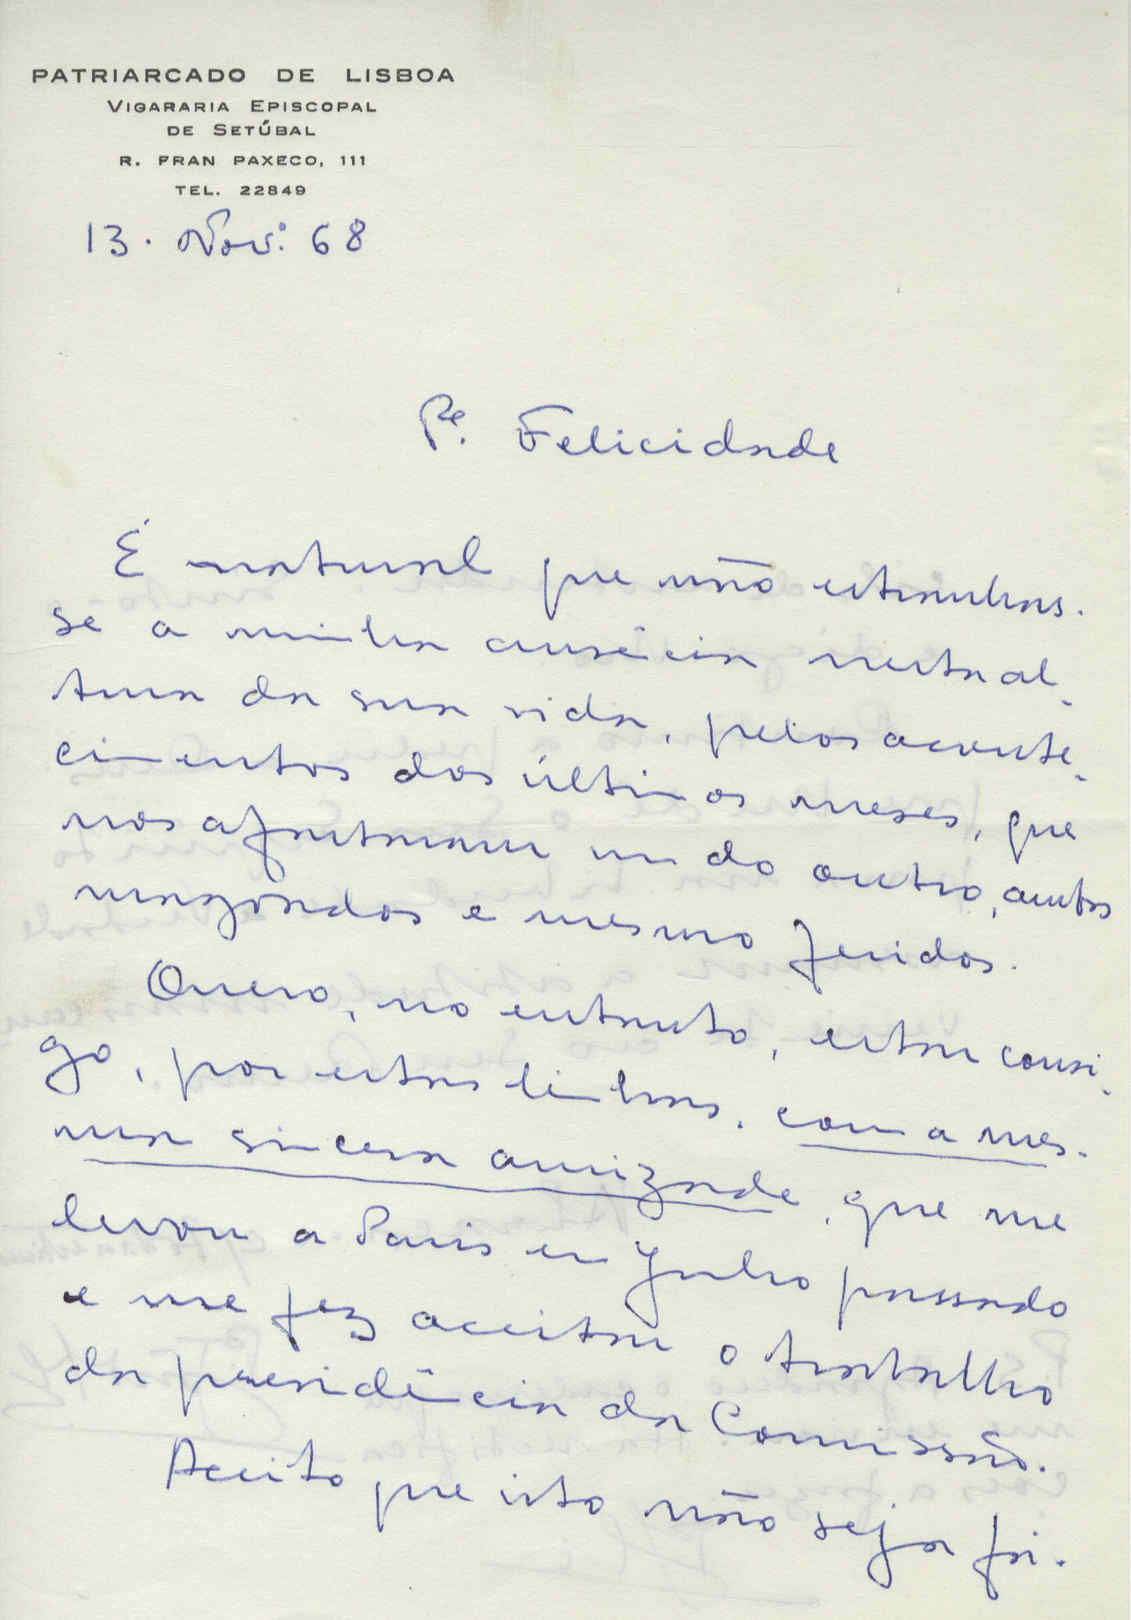 PATRIARCADO DE LISBOA
VIGARARIA EPISCOPAL
DE SETÚBAL
R. FRAN PAXECO, 111
TEL. 22849
13. Nov.º 68
Pe. Felicidade
É natural que não estranhas-
se a minha ausência nesta al-
tura da sua vida, pelos aconte-
cimentos dos últimos meses, que
nos afastaram um do outro, ambos
magoados e mesmo feridos.
Quero, no entanto, estar consi-
go, por estas linhas, com a mes-
ma sincera amizade, que me
levou a Paris em Julho passado
e me fez aceitar o trabalho
da presidência da Comissão.
Aceito que isto não seja fá-